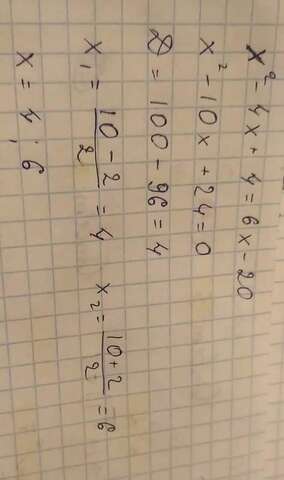 x² - 4x + 4 = 6x - 20
x² - 10x + 24 = 0
D = 100 - 96 = 4
x₁ = (10 - 2)/2 = 4 x₂ = (10 + 2)/2 = 6
x = 4 ; 6